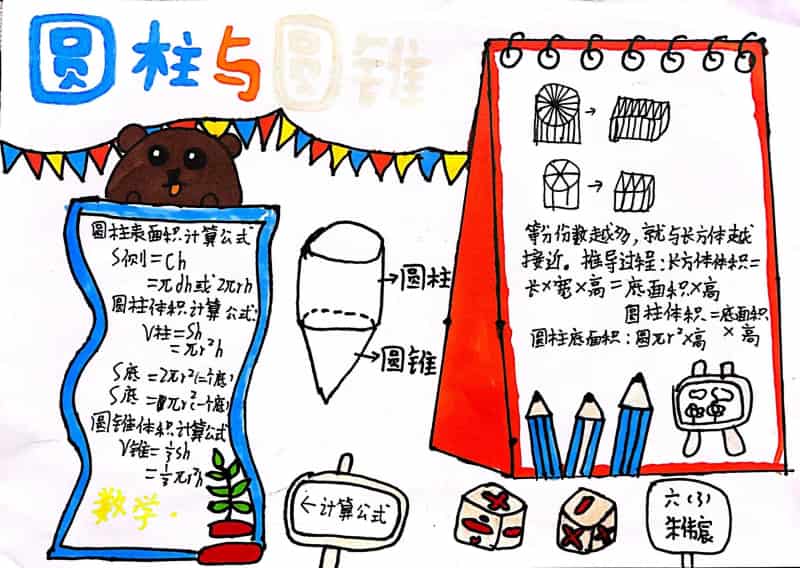 圆柱与圆锥
圆柱表面积计算公式
S侧=Ch
=πdh或2πrh
圆柱体积计算公式:
V柱=Sh
=πr²h
S底=2πr²(二个底)
S底=πr²(一个底)
圆锥体积计算公式
V锥=⅓sh
=⅓πr²h
数学.
→圆柱
→圆锥
←计算公式
等分份数越多,就与长方体越
接近。推导过程:长方体体积=
长×宽×高=底面积×高
圆柱体积=底面积
×高
圆柱底面积:圆πr²×高
六(3)
朱伟宸